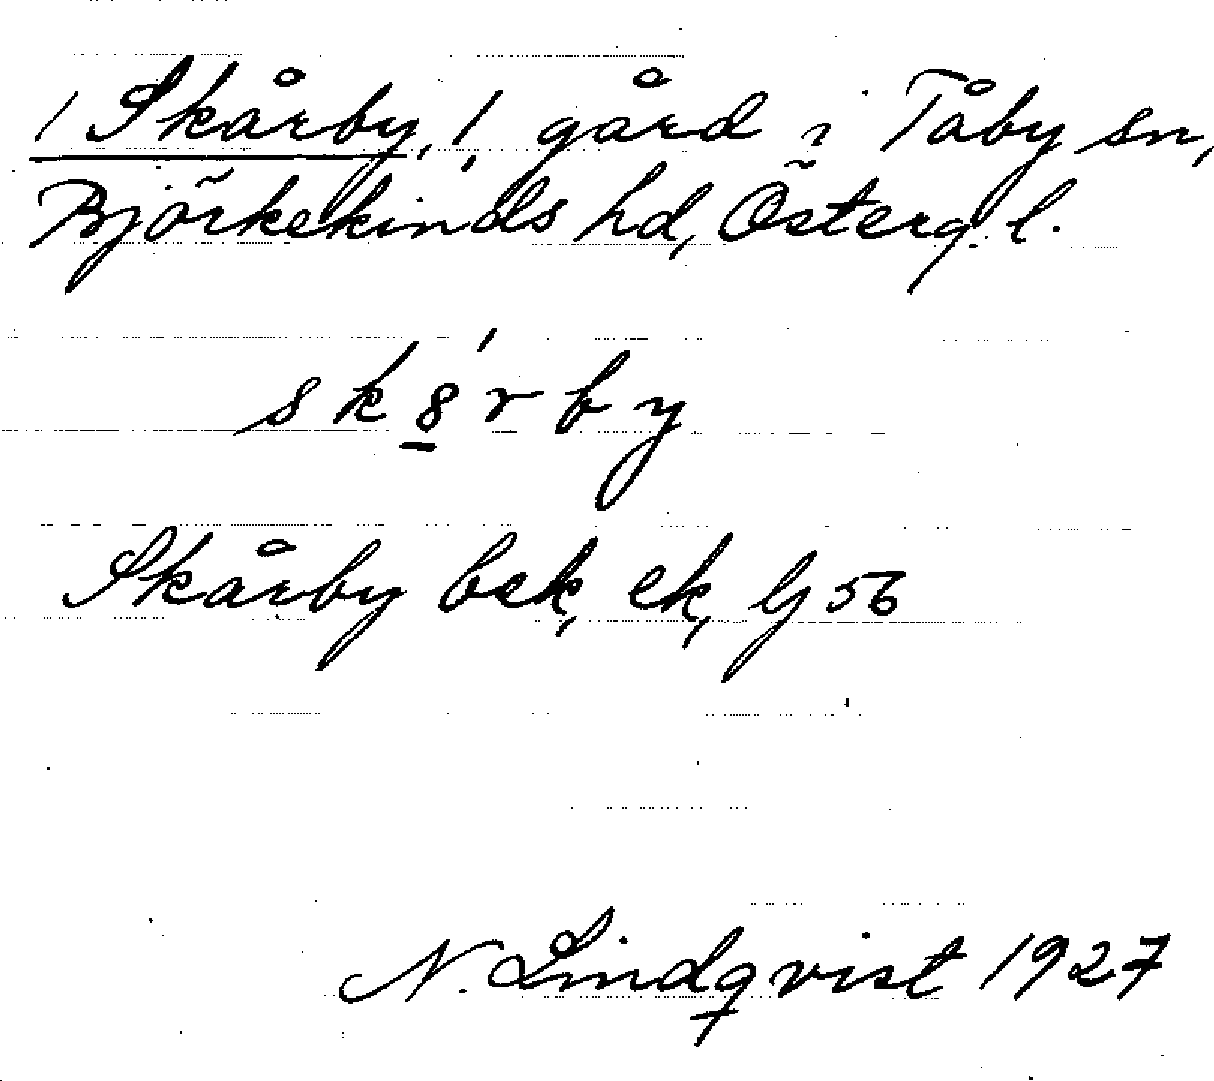 / Skårby, /, gård i Tåby sn,
Björkekinds hd, Österg. l.
sk8́rby
Skårby bek, ek, Gj 56
N. Lindqvist 1927